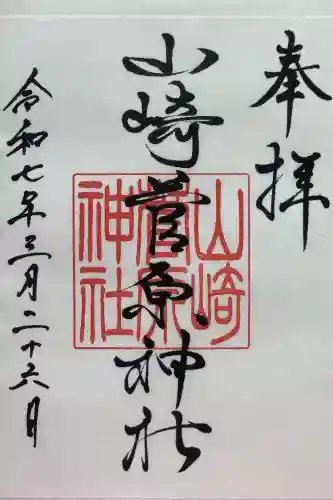 奉拝
山崎菅原神社
山崎
菅原
神社
令和七年三月二十六月